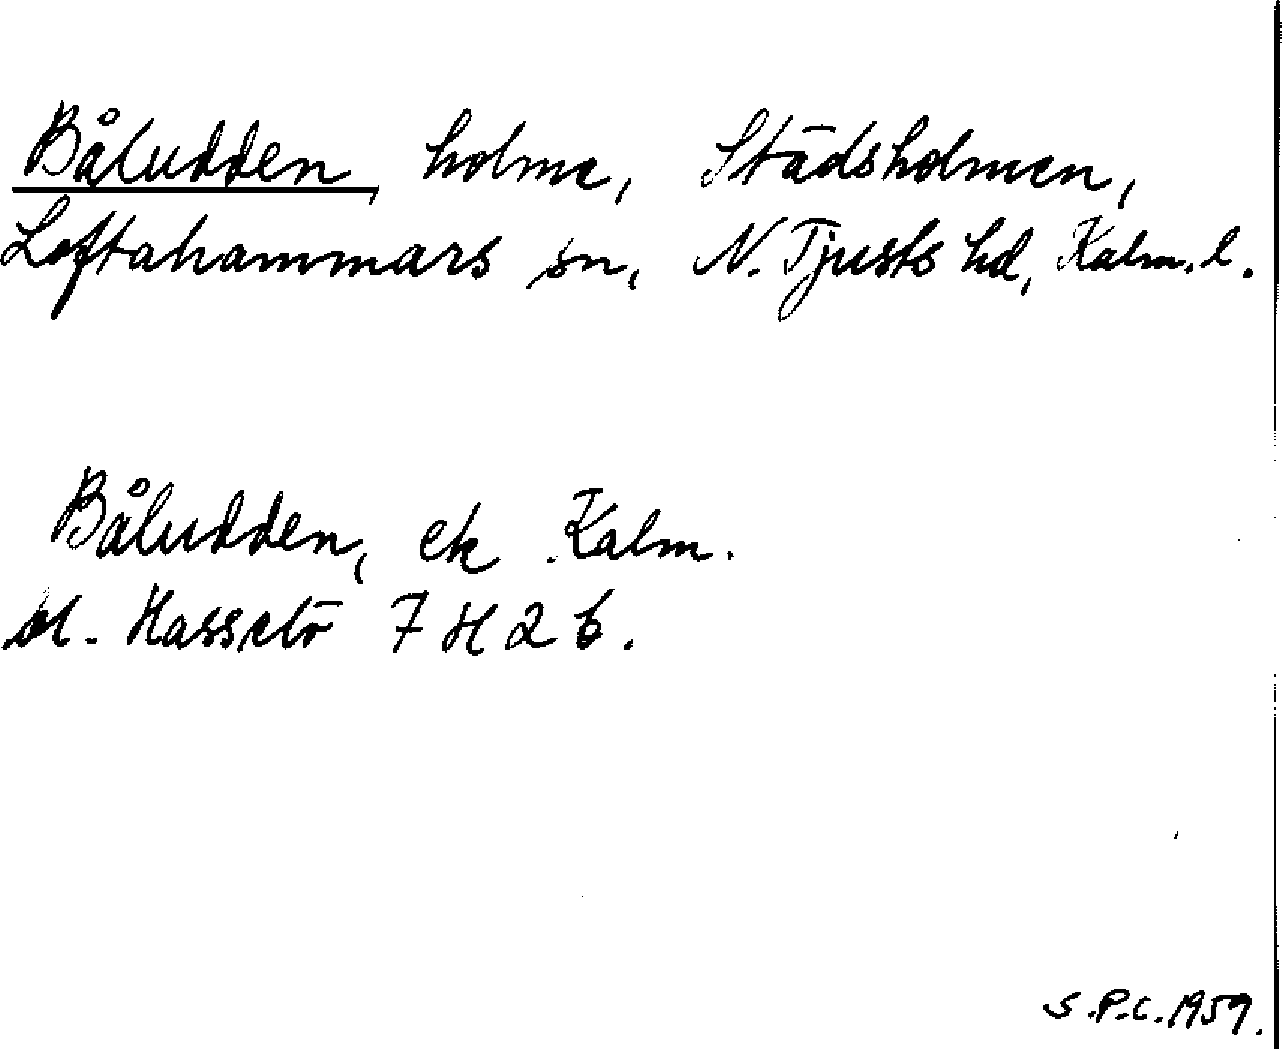 Båludden, holme, Städsholmen,
Loftahammars sn, N. Tjusts hd, Kalm. l.
Båludden, ek Kalm.
bl. Hasselö 7 H 2 b.
S.P.C. 1959.